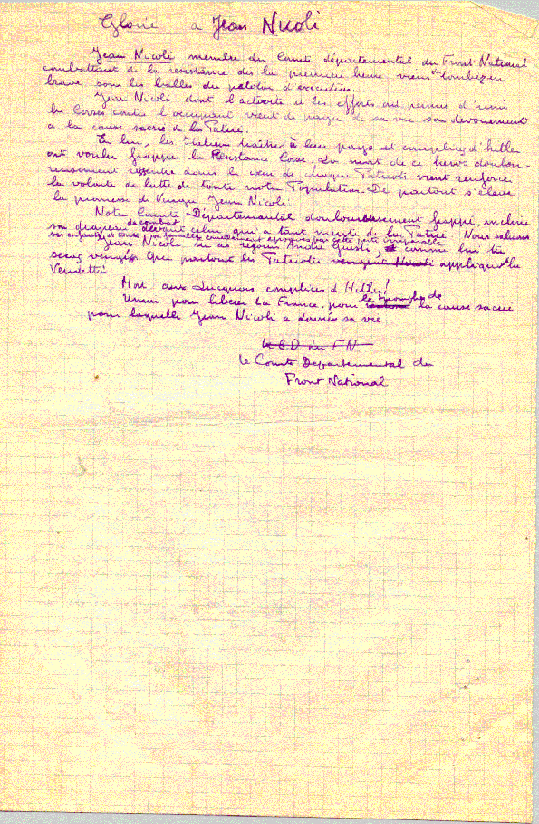 Gloire à Jean Nicoli
Jean Nicoli membre du Comité départemental du Front National
combattant de la résistance dès la première heure vient de tomber en
brave sous les balles du peloton d'exécution.
Jean Nicoli dont l'activité et les efforts ont permis d'unir
la Corse contre l'occupant vient de payer de sa vie son dévouement
à la cause sacrée de la Patrie.
En lui, les traîtres à leur pays et d'Hitler
ont voulu frapper la Résistance Corse. La mort de ce héros doulou-
reusement dans le cœur de chaque Patriote vient renforcer
la volonté de lutte de toute notre Population. De partout s'élève
la promesse de Venger Jean Nicoli.
Notre Comité Départemental douloureusement frappé, incline
son drapeau de combat devant celui qui a tant mérité de la Patrie. Nous saluons
sa cruellement éprouvée par cette perte irréparable
Jean Nicoli tu as rejoint André Giusti, comme lui tu
seras vengé. Que partout les Patriotes appliquent la
Vendetta!
Mort aux complices d'Hitler!
Unis pour libérer la France, pour le triomphe de la cause sacrée
pour laquelle Jean Nicoli a donnée sa vie
Le C.D du FN
Le Comité Départemental du
Front National